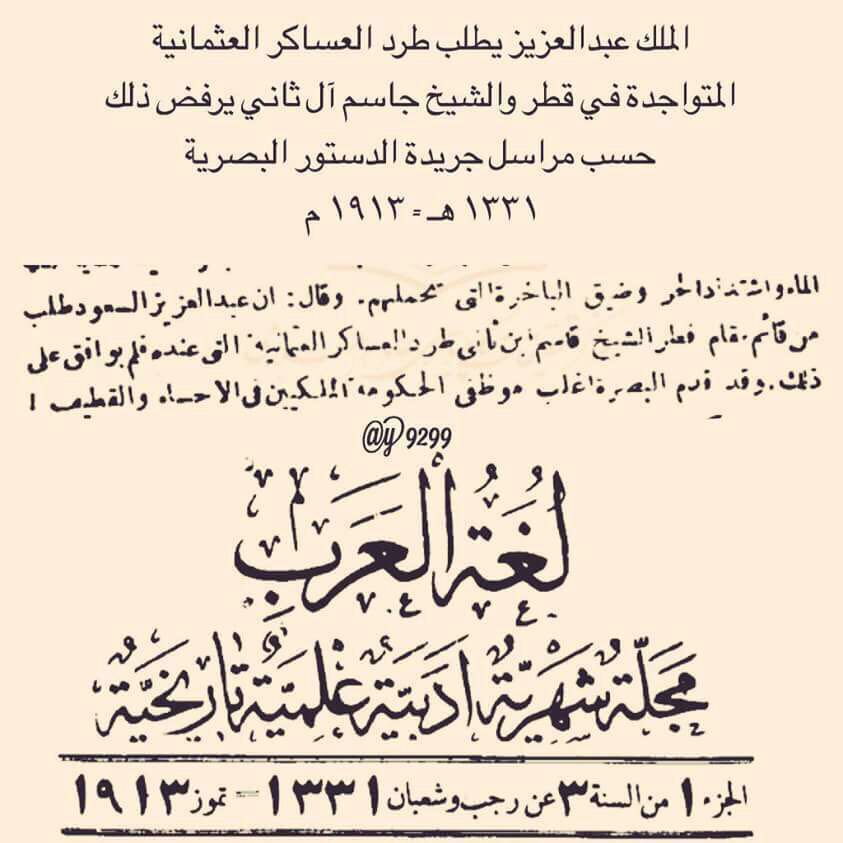 الملك عبدالعزيز يطلب طرد العساكر العثمانية
المتواجدة في قطر والشيخ جاسم آل ثاني يرفض ذلك
حسب مراسل جريدة الدستور البصرية
١٣٣١ هـ = ١٩١٣ م
الماء واشتداد الحر وضيق الباخرة التي تحملهم. وقال: ان عبدالعزيز السعود طلب
من قائم مقام قطر الشيخ قاسم ابن ثاني طرد العساكر العثمانية التي عنده فلم يوافق على
ذلك. وقد قدم البصرة اغلب موظفي الحكومة الملكيين في الاحساء والقطيف !
@y9299
لُغَةُ العَرَبِ
مَجَلَّةٌ شَهْرِيَّةٌ أَدَبِيَّةٌ عِلْمِيَّةٌ تَارِيخِيَّةٌ
الجزء ١ من السنة ٣ عن رجب وشعبان ١٣٣١ = تموز ١٩١٣